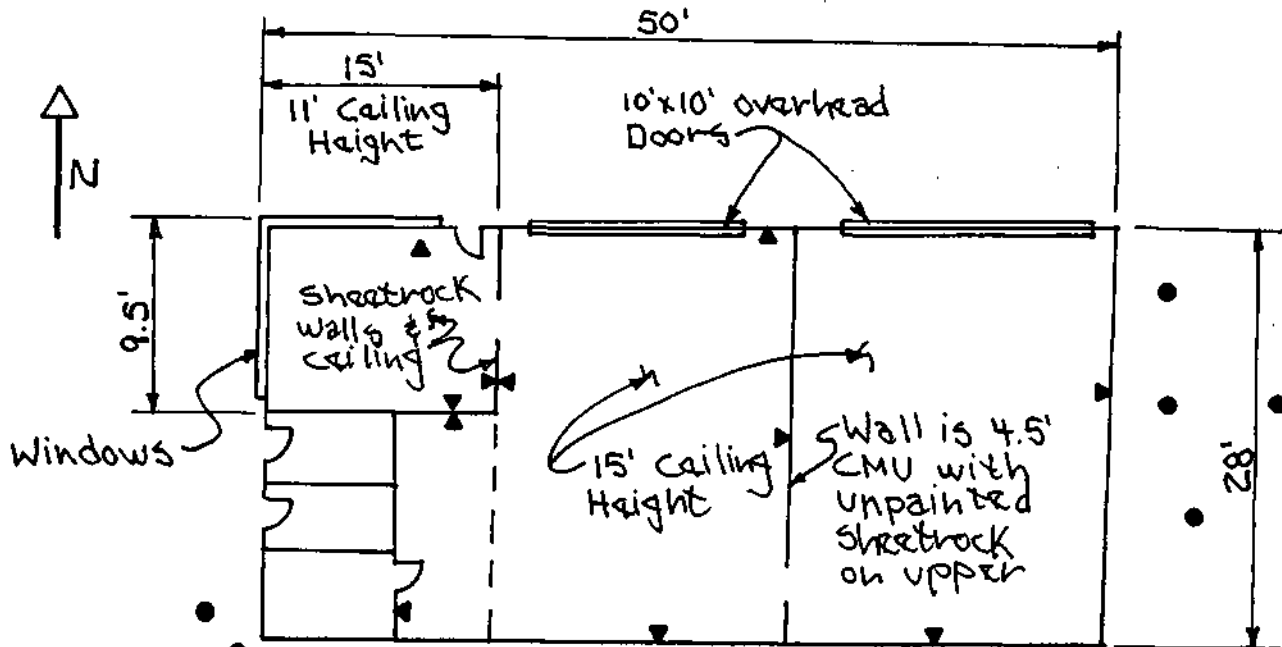 50'
15'
11' Ceiling
Height
10'x10' overhead
Doors
N
9.5'
Sheetrock
Walls &
Ceiling
Windows
15' Ceiling
Height
Wall is 4.5'
CMU with
unpainted
Sheetrock
on upper
28'